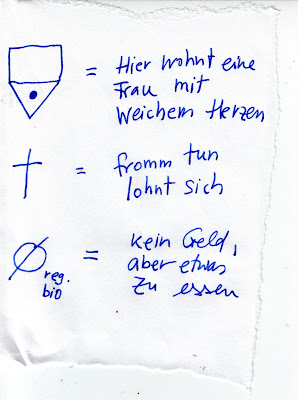 = Hier wohnt eine
Frau mit
Weichem Herzen
= fromm tun
lohnt sich
= kein Geld,
aber etwas
zu essen
reg.
bio